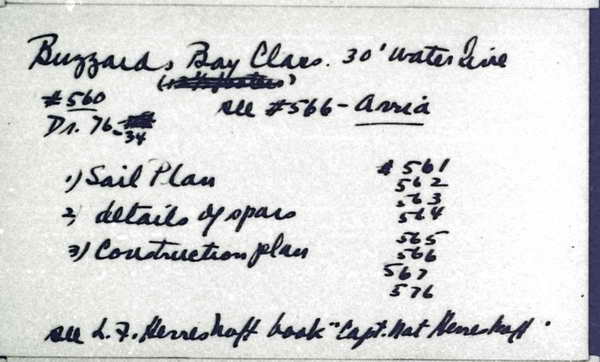 Buzzards Bay Class. 30' Water Line
#560
see #566 - Arria
Dr. 76-34
1) Sail Plan
2) details of spars
3) Construction plan
# 561
562
563
564
565
566
567
576
see L.F. Herreshoff book "Capt. Nat Herreshoff".